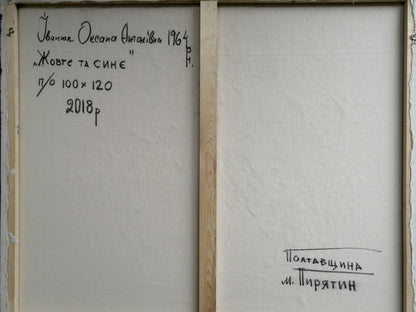 Іванюк Оксана Антонівна 1964 р.н.
„Жовте та синє"
п/о 100×120
2018р
Полтавщина
м. Пирятин